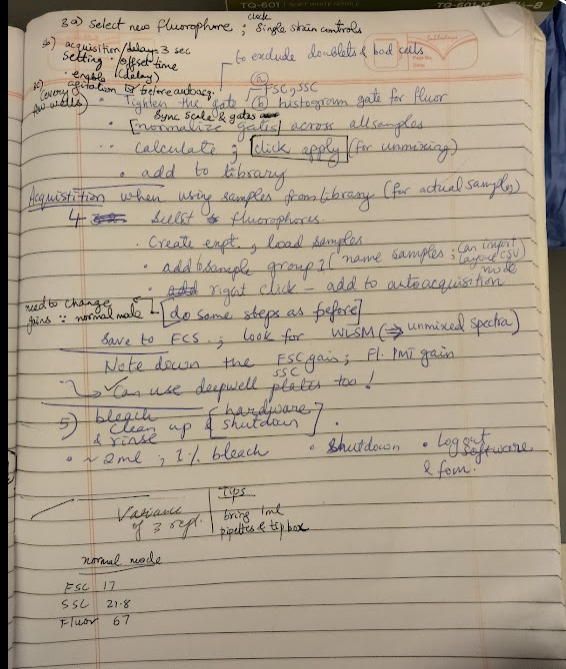 TO-601
TO-601-M
3a) Select new fluorophore ; click Single stain controls
3b) acquisition/delay = 3 sec
Setting · offset time
· enable (delay)
to exclude doublets & bad cells
3c) agitation before autoacq.
(every few wells)
· Tighten the gate (a) FSC, SSC
(b) histogram gate for fluor
Sync scale & gates
· [normalize gates] across all samples
· Calculate ; click apply (for unmixing)
· add to library
Acquistition when using samples from library (for actual samples)
4 Select fluorophores
· Create expt. , load samples
· add to sample group 1 [name samples ; can import layout CSV
mode
· right click – add to autoacquisition
need to change gains ∵ normal mode
[do same steps as before]
Save to FCS ; look for WLSM (⇒ unmixed spectra)
Note down the FSC gain ; Fl. PMT gain
SSC
↳ ✓ Can use deepwell plates too !
5) bleach
Clean up & [hardware shutdown]
& rinse
· ~ 2ml ; 1% bleach · Shutdown · Log out software
& fom.
Variance of 3 repl.
Tips
bring 1ml
pipettes & tip box
normal mode
FSC 17
SSC 21.8
Fluor 67